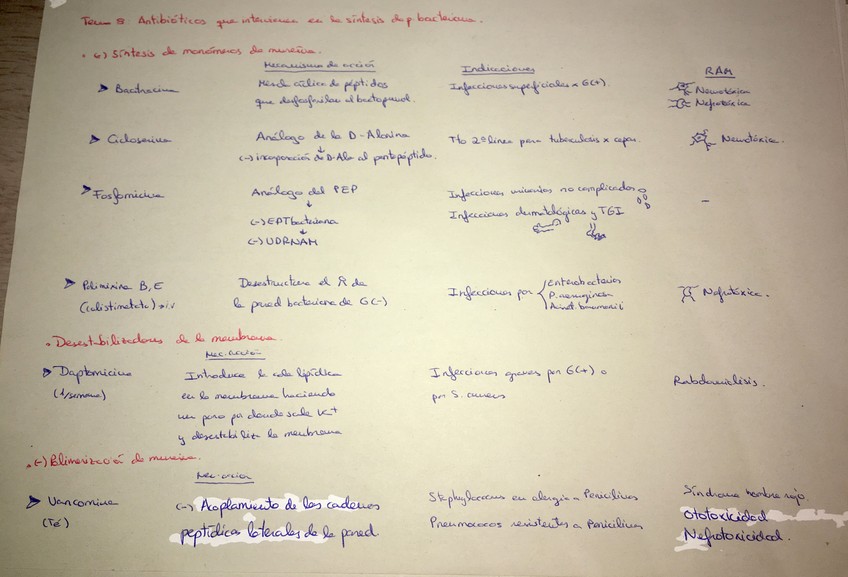 Tema 8: Antibióticos que intervienen en la síntesis de p bacteriana.
· (-) Síntesis de monómeros de mureína.
Mecanismo de acción Indicaciones RAM
➤ Bacitracina Mezcla cíclica de péptidos Infecciones superficiales x G(+). Neurotóxica
que desfosforilan al bactoprenol. Nefrotóxica
➤ Cicloserina Análogo de la D-Alanina Tto 2ª línea para tuberculosis x Neurotóxica.
(-) incorporación de D-Ala al pentapéptido.
➤ Fosfomicina Análogo del PEP Infecciones urinarias no complicadas -
↓ Infecciones dermatológicas y TGI
(-) EPT bacteriana
↓
(-) UDPNAM
➤ Polimixina B, E Desestructura el de Infecciones por Enterobacterias Nefrotóxica.
(colistimetato) → i.v la pared bacteriana de G(-) P. aeruginosa
Acinet. baumannii
· Desestabilizadores de la membrana.
Mec. acción
➤ Daptomicina Introduce la cola lipídica Infecciones graves por G(+) o Rabdomiolisis.
(1/semana) en la membrana haciendo por S. aureus
un poro por donde sale K+
y desestabiliza la membrana
· (-) Polimerización de mureína.
Mec. acción
➤ Vancomicina (-) Acoplamiento de las cadenas Staphylococcus en alergia a Penicilinas Síndrome hombre rojo.
peptídicas laterales de la pared. Pneumococos resistentes a Penicilinas Ototoxicidad
Nefrotoxicidad.